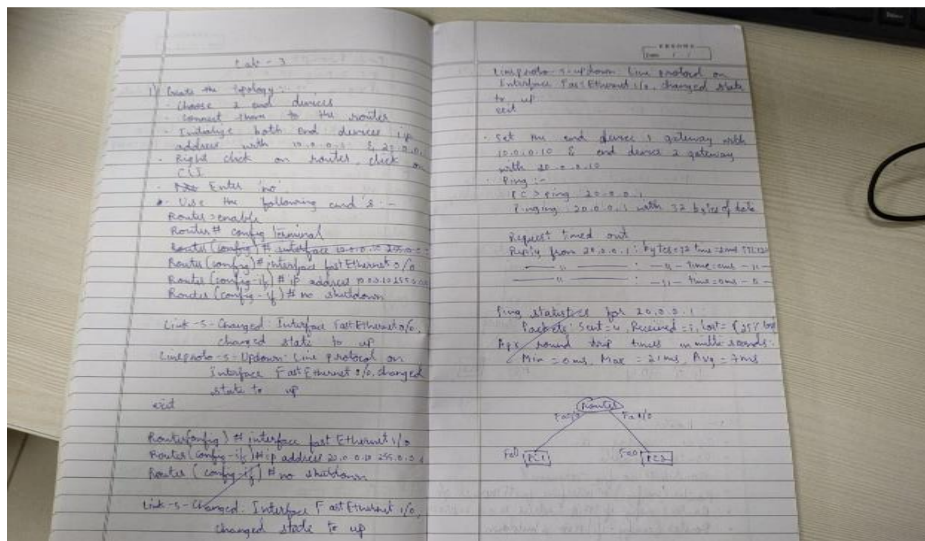 Lab - 3
1) Create the topology :-
- Choose 2 end devices
- Connect them to the router
- Initialize both end devices ip
address with 10.0.0.1 & 20.0.0.
- Right click on router, click on
CLI
- Enter 'no'
- Use the following cmd's :-
Router > enable
Router # config terminal
Router (config) # interface 10.0.0.10 255.0.
Router (config) # interface fastEthernet 0/0
Router (config-if) # ip address 10.0.0.10 255.0.
Router (config-if) # no shutdown
Link-5-Changed: Interface FastEthernet 0/0,
changed state to up
Lineproto-5-Updown: Line protocol on
Interface FastEthernet 0/0, changed
state to up
exit
Router(onfig) # interface fastEthernet 1/0
Router (config-if) # ip address 20.0.0.10 255.0.0.
Router (config-if) # no shutdown
Link-5-Changed: Interface FastEthernet 1/0,
changed state to up
Lineproto-5-updown: Line protocol on
Interface FastEthernet 1/0, changed state
to up
exit
- Set the end device 1 gateway with
10.0.0.10 & end device 2 gateway
with 20.0.0.10
- Ping :-
PC > ping 20.0.0.1
Pinging 20.0.0.1 with 32 bytes of data
Request timed out
Reply from 20.0.0.1 : bytes=32 time=2ms TTL
— " — : — " — Time=0ms — " —
— " — : — " — Time=0ms — " —
Ping statistics for 20.0.0.1 :
Packets: Sent=4, Received=3, Lost= (25% lost
Apx round trip times in milli seconds:
Min = 0ms, Max = 21ms, Avg = 7ms
Router
Fa0/0
Fa1/0
Fa0
PC1
Fa0
PC2